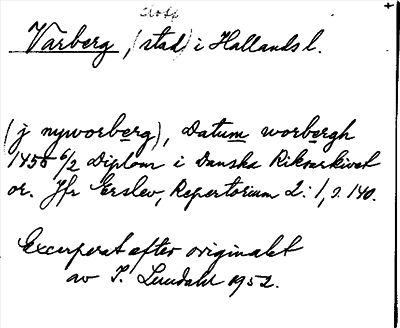 slott
Varberg, (stad) i Hallands l.
(j nyworberg), Datum worbergh
1455 6/2 Diplom i Danska Riksarkivet
or. Jfr Erslev, Repertorium 2:1, s. 140.
Excerperat efter originalet
av I. Lundahl 1952.